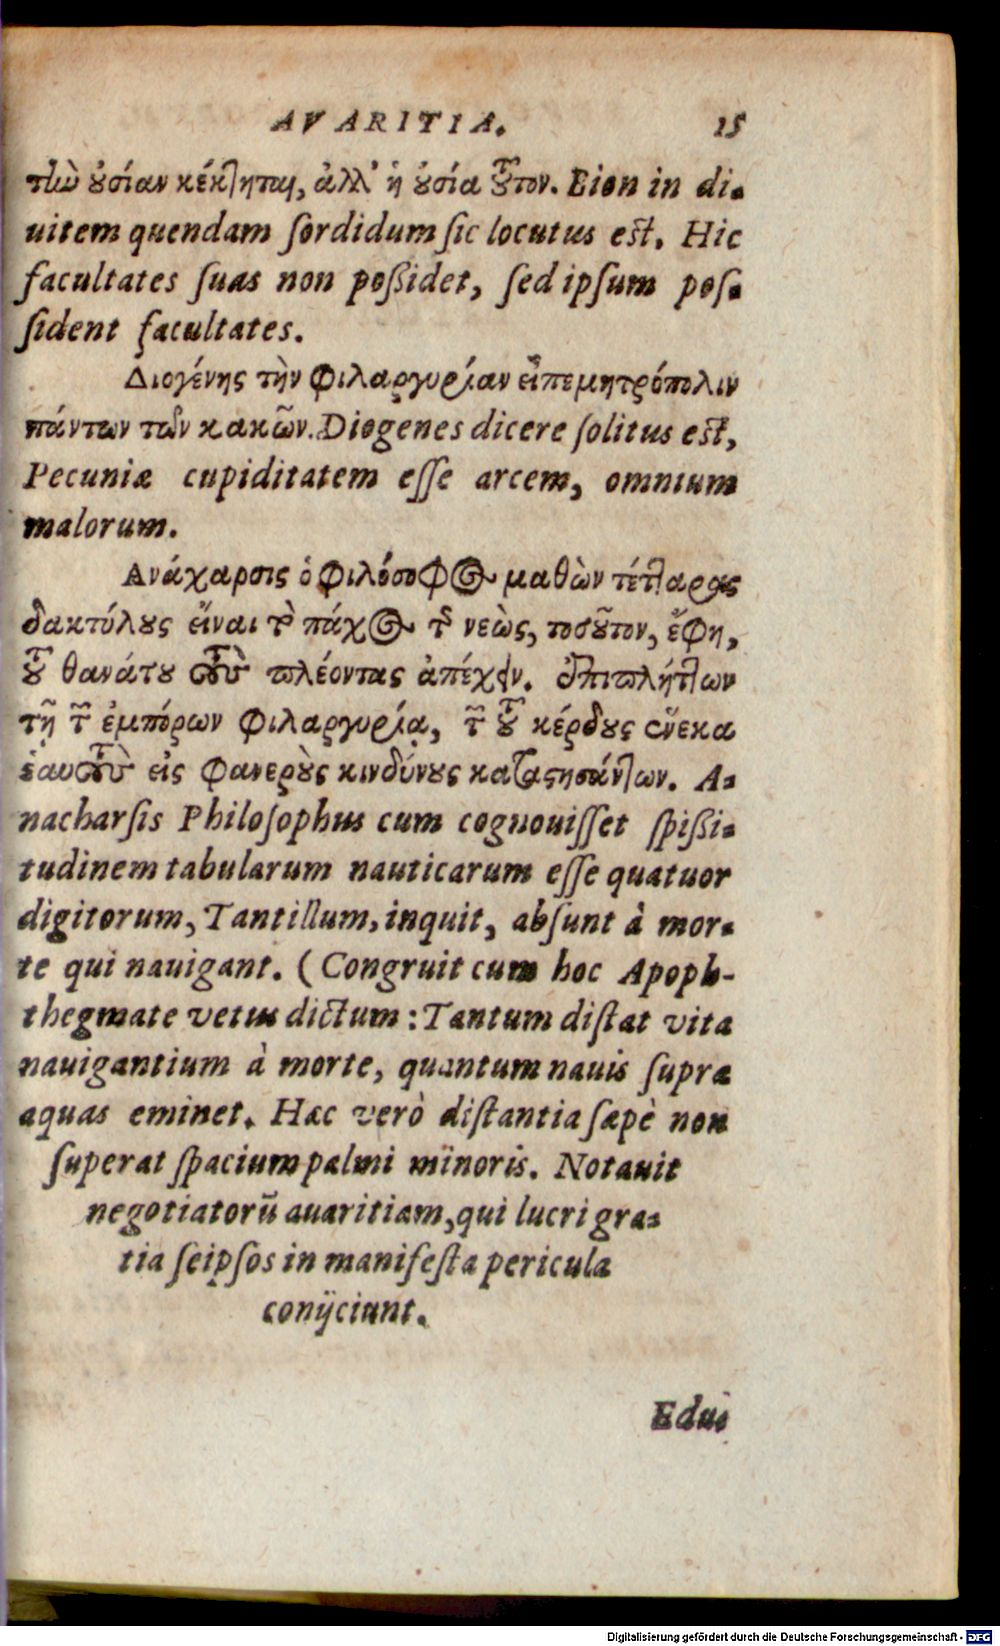 AVARITIA. 15
τὴν ȣσίαν κέκτηται, ἀλλ' ἡ ȣσία τȣ͂τον. Bion in di-
uitem quendam ſordidum ſic locutus est. Hic
facultates ſuas non poßidet, ſed ipſum poſ-
ſident facultates.
Διογένης τὴν φιλαργυρίαν εἶπε μητρόπολιν
πάντων τῶν κακῶν. Diogenes dicere ſolitus est,
Pecuniæ cupiditatem eſſe arcem, omnium
malorum.
Ανάχαρσις ὁ φιλόσοφος μαθὼν τέτταρας
δακτύλȣς εἶναι τὸ πάχος τῆς νεὼς, τοσȣ͂τον, ἔφη,
τȣ͂ θανάτȣ τοὺς πλέοντας ἀπέχειν. ἐπιπλήττων
τῇ τῶν ἐμπόρων φιλαργυρίᾳ, τῶν τȣ͂ κέρδȣς ἕνεκα
ἑαυτοὺς εἰς φανερȣ̀ς κινδύνȣς καταστησάντων. A-
nacharſis Philoſophus cum cognouiſſet ſpißi-
tudinem tabularum nauticarum eſſe quatuor
digitorum, Tantillum, inquit, abſunt à mor-
te qui nauigant. (Congruit cum hoc Apoph-
thegmate vetus dictum: Tantum diſtat vita
nauigantium à morte, quantum nauis ſupra
aquas eminet. Hæc verò diſtantia ſæpè non
ſuperat ſpacium palmi minoris. Notauit
negotiatorū auaritiam, qui lucri gra-
tia ſeipſos in manifeſta pericula
conijciunt.
Digitalisierung gefördert durch die Deutsche Forschungsgemeinschaft - DFG